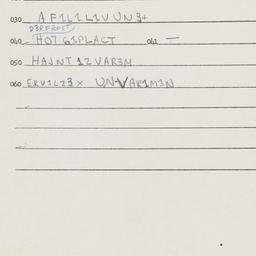 030 AF1L1L1VUN3+
D3RFROST
040 HOT G1PLACT 041 —
050 HAJNT 12VAR3M
060 ERV1LZ3X UNVAR1M1N